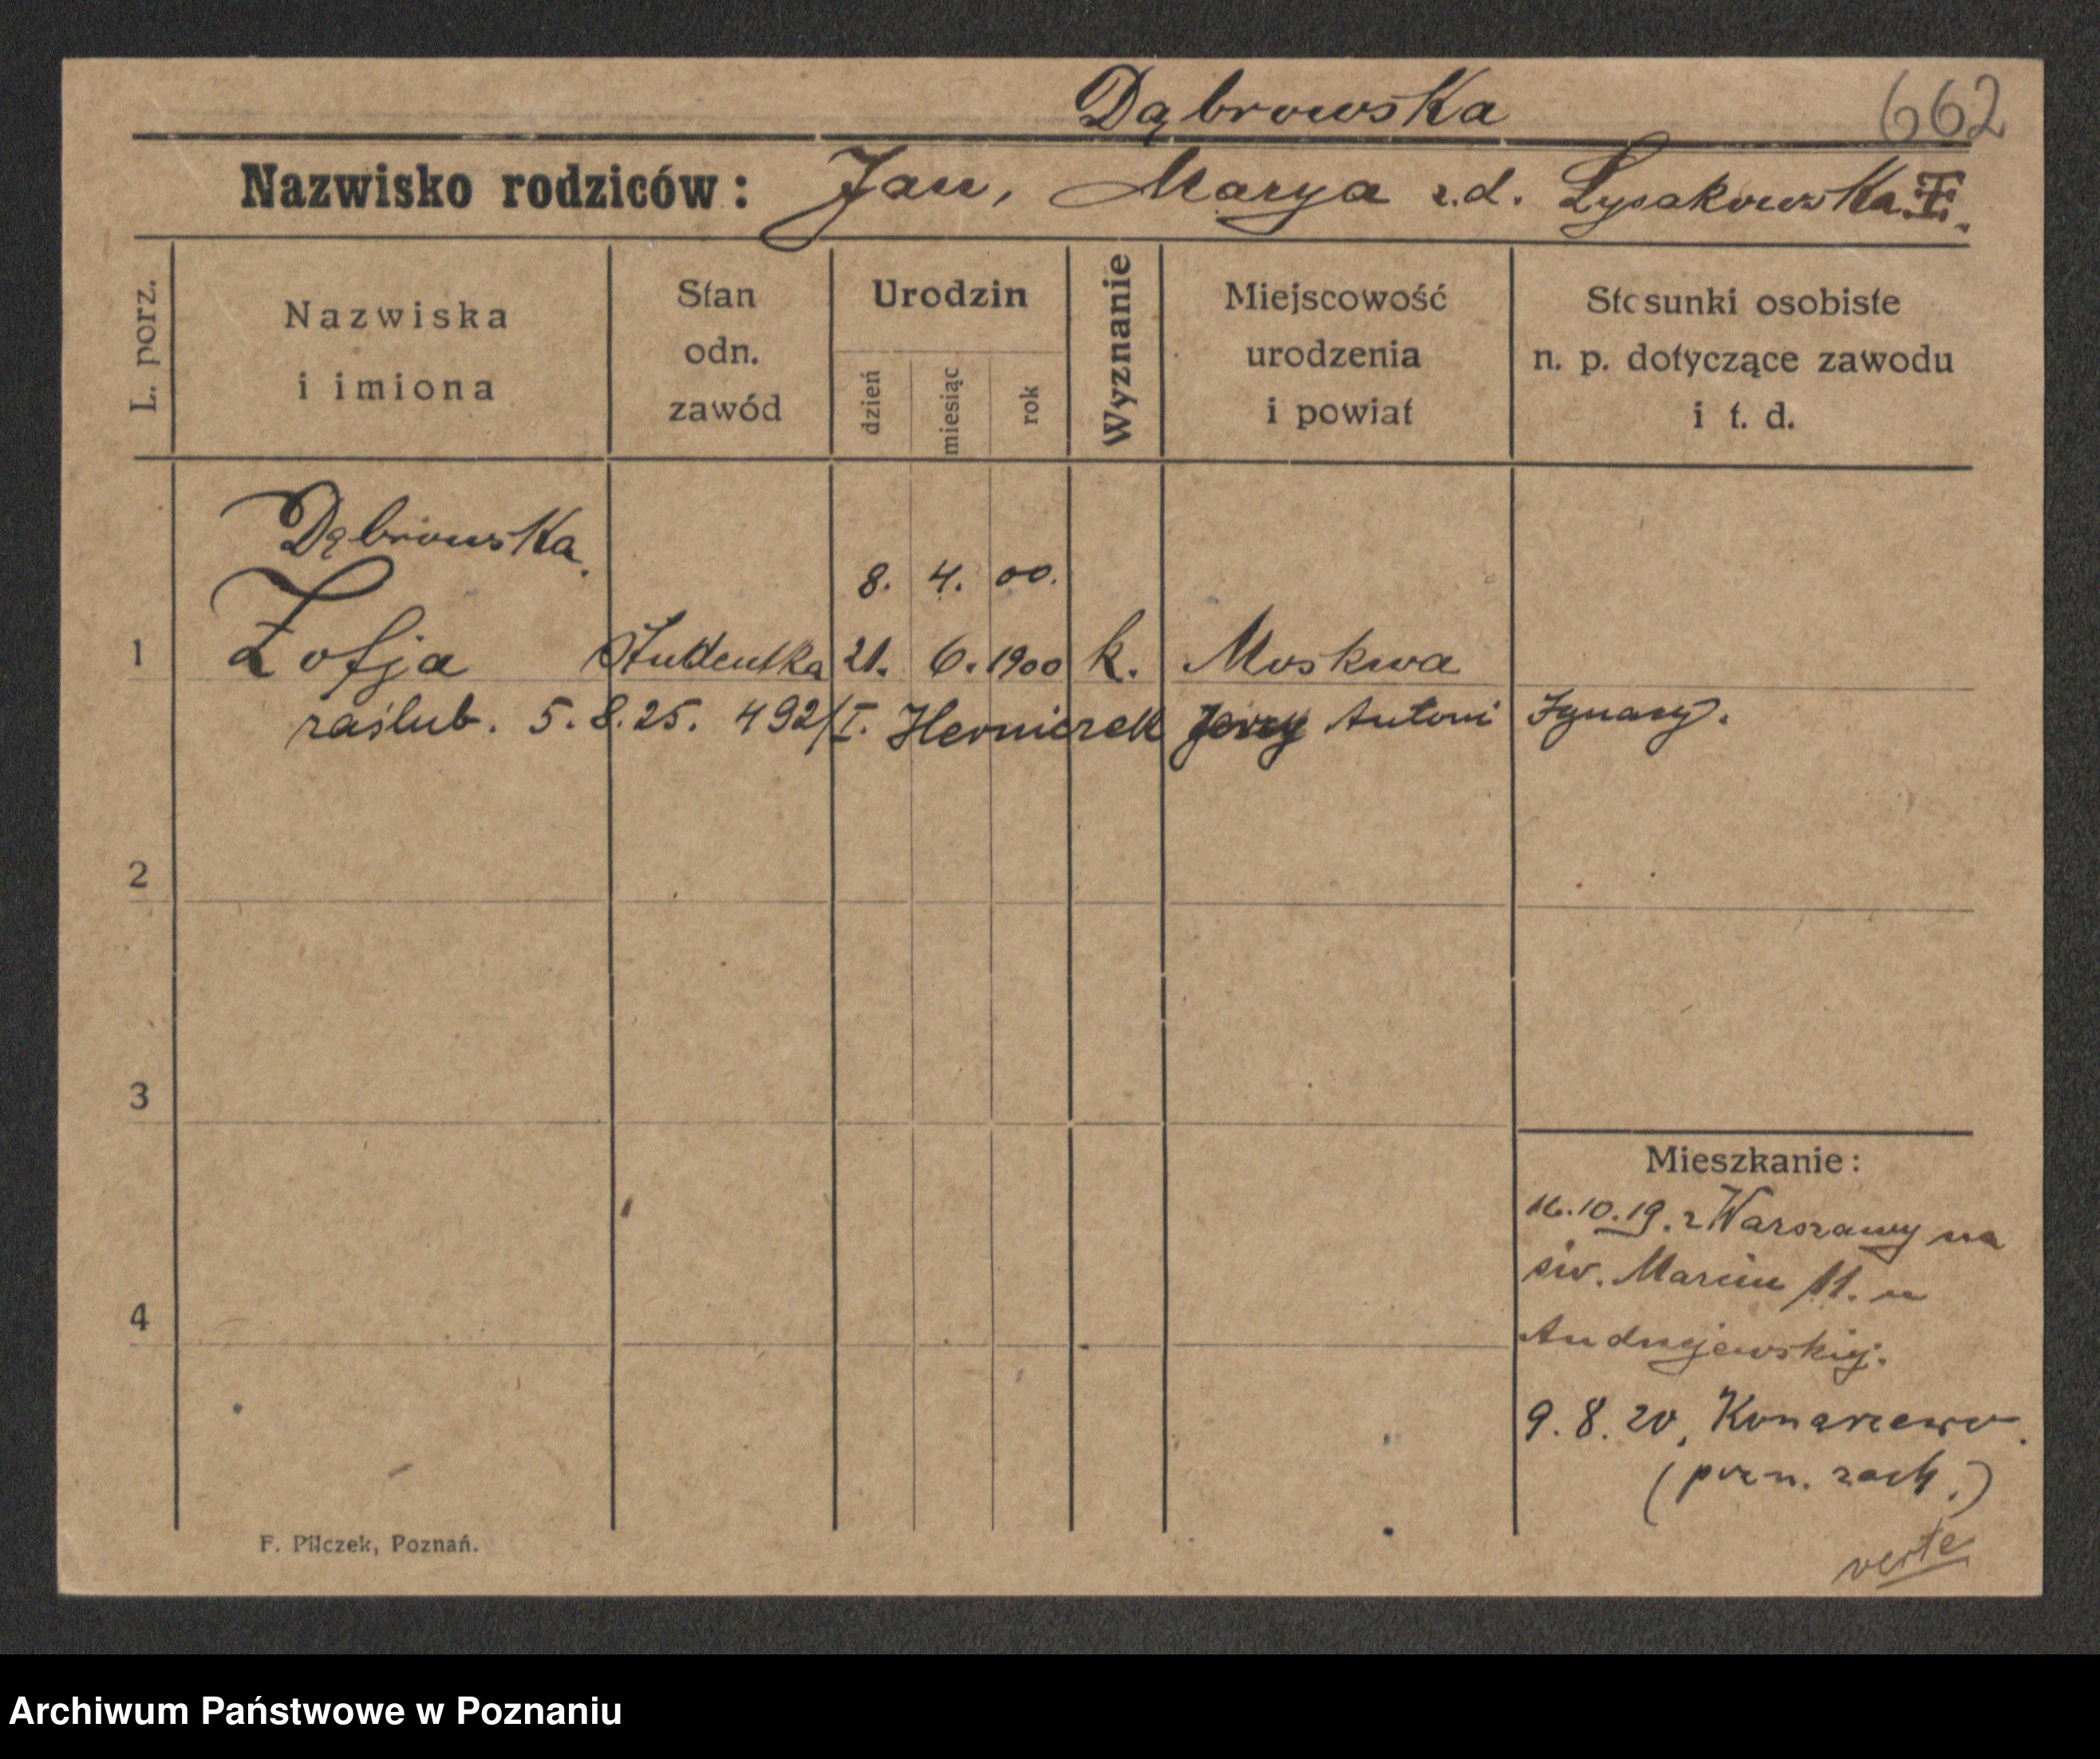 Dąbrowska 662
Nazwisko rodziców: Jan, Marya z.d. Łysakowska
L. porz.
Nazwiska i imiona
Stan odn. zawód
Urodzin
dzień miesiąc rok
Wyznanie
Miejscowość urodzenia i powiat
Stosunki osobiste n. p. dotyczące zawodu i t. d.
Dąbrowska.
8. 4. 00.
1 Zofja Studentka 21. 6. 1900 k. Moskwa
zaślub. 5.8.25. 492/I. Jerzy Antoni Ignacy.
2
3
4
Mieszkanie:
16.10.19. z Warszawy na
św. Marcin 11. u
Andrzejewskiej.
9.8.20, Konarzewo.
(pozn. zach.)
verte
F. Pilczek, Poznań.
Archiwum Państwowe w Poznaniu